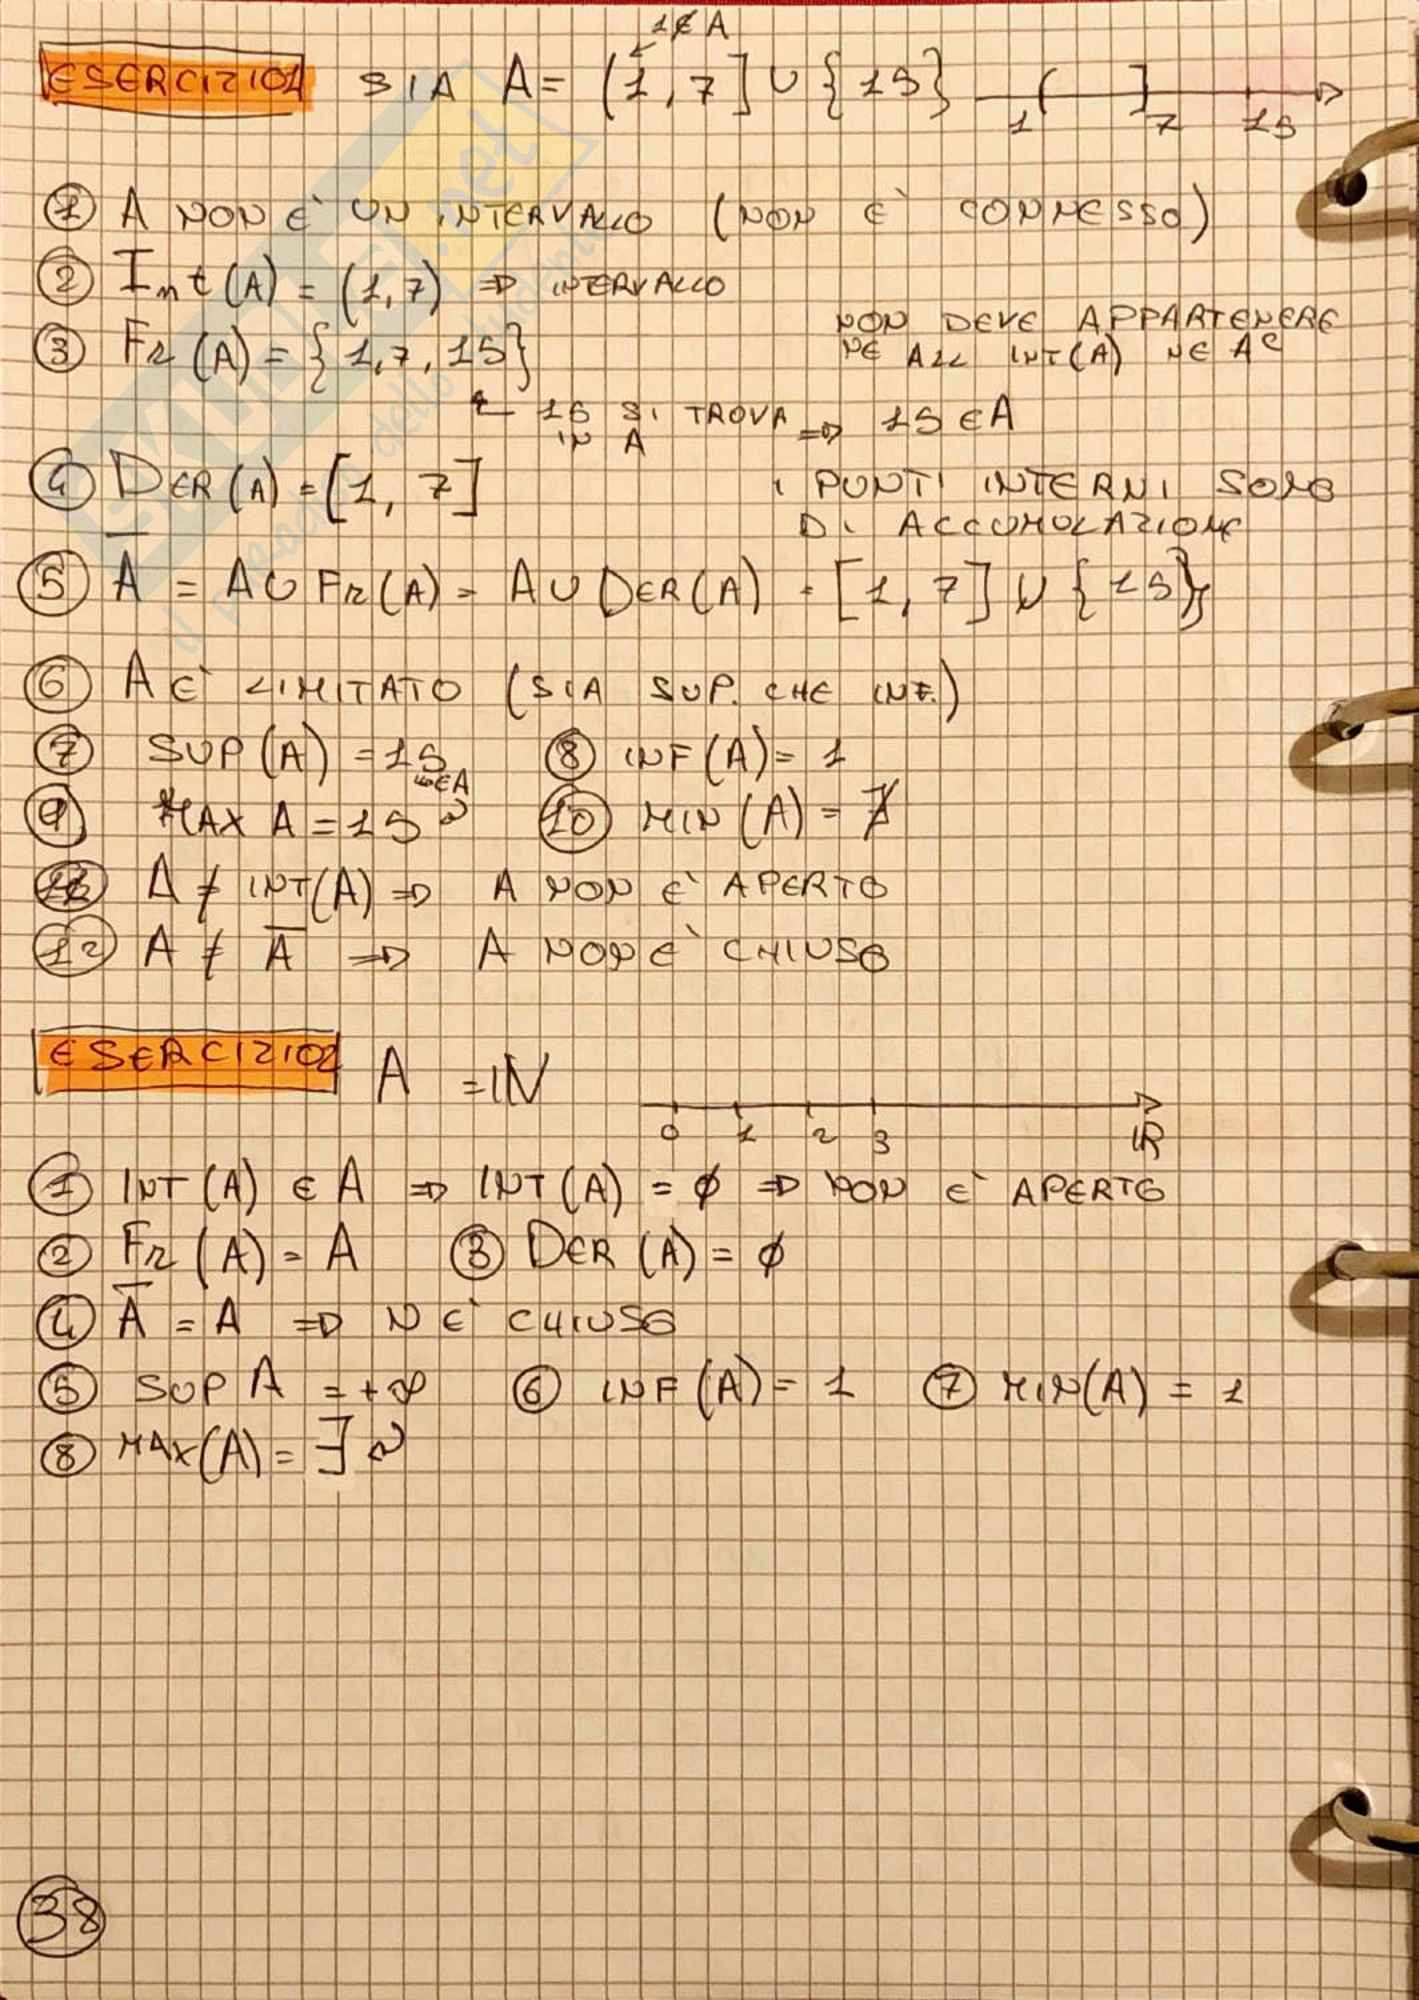 1∉A
ESERCIZIO1 SIA A= (1,7]∪{15} 1 7 15
① A NON È UN INTERVALLO (NON È CONNESSO)
② Int(A) = (1,7) ⇒ INTERVALLO
③ Fr(A) = {1,7,15} NON DEVE APPARTENERE
NE ALL INT(A) NE AC
← 15 SI TROVA ⇒ 15 ∈ A
IN A
④ DER(A) = [1, 7] I PUNTI INTERNI SONO
DI ACCUMULAZIONE
⑤ A̅ = A∪Fr(A) = A∪DER(A) = [1,7]∪{15}
⑥ A È LIMITATO (SIA SUP. CHE INF.)
⑦ SUP(A) = 15 ⑧ INF(A) = 1
∈A
⑨ MAX A = 15 ⑩ MIN(A) = ∄
A ≠ INT(A) ⇒ A NON È APERTO
⑫ A ≠ A̅ ⇒ A NON È CHIUSO
ESERCIZIO2 A =ℕ
0 1 2 3 ℝ
① INT(A) ∈ A ⇒ INT(A) = ∅ ⇒ NON È APERTO
② Fr(A) = A ③ DER(A) = ∅
④ A̅ = A ⇒ N È CHIUSO
⑤ SUP A = +∞ ⑥ INF(A) = 1 ⑦ MIN(A) = 1
⑧ MAX(A) = ∃
38